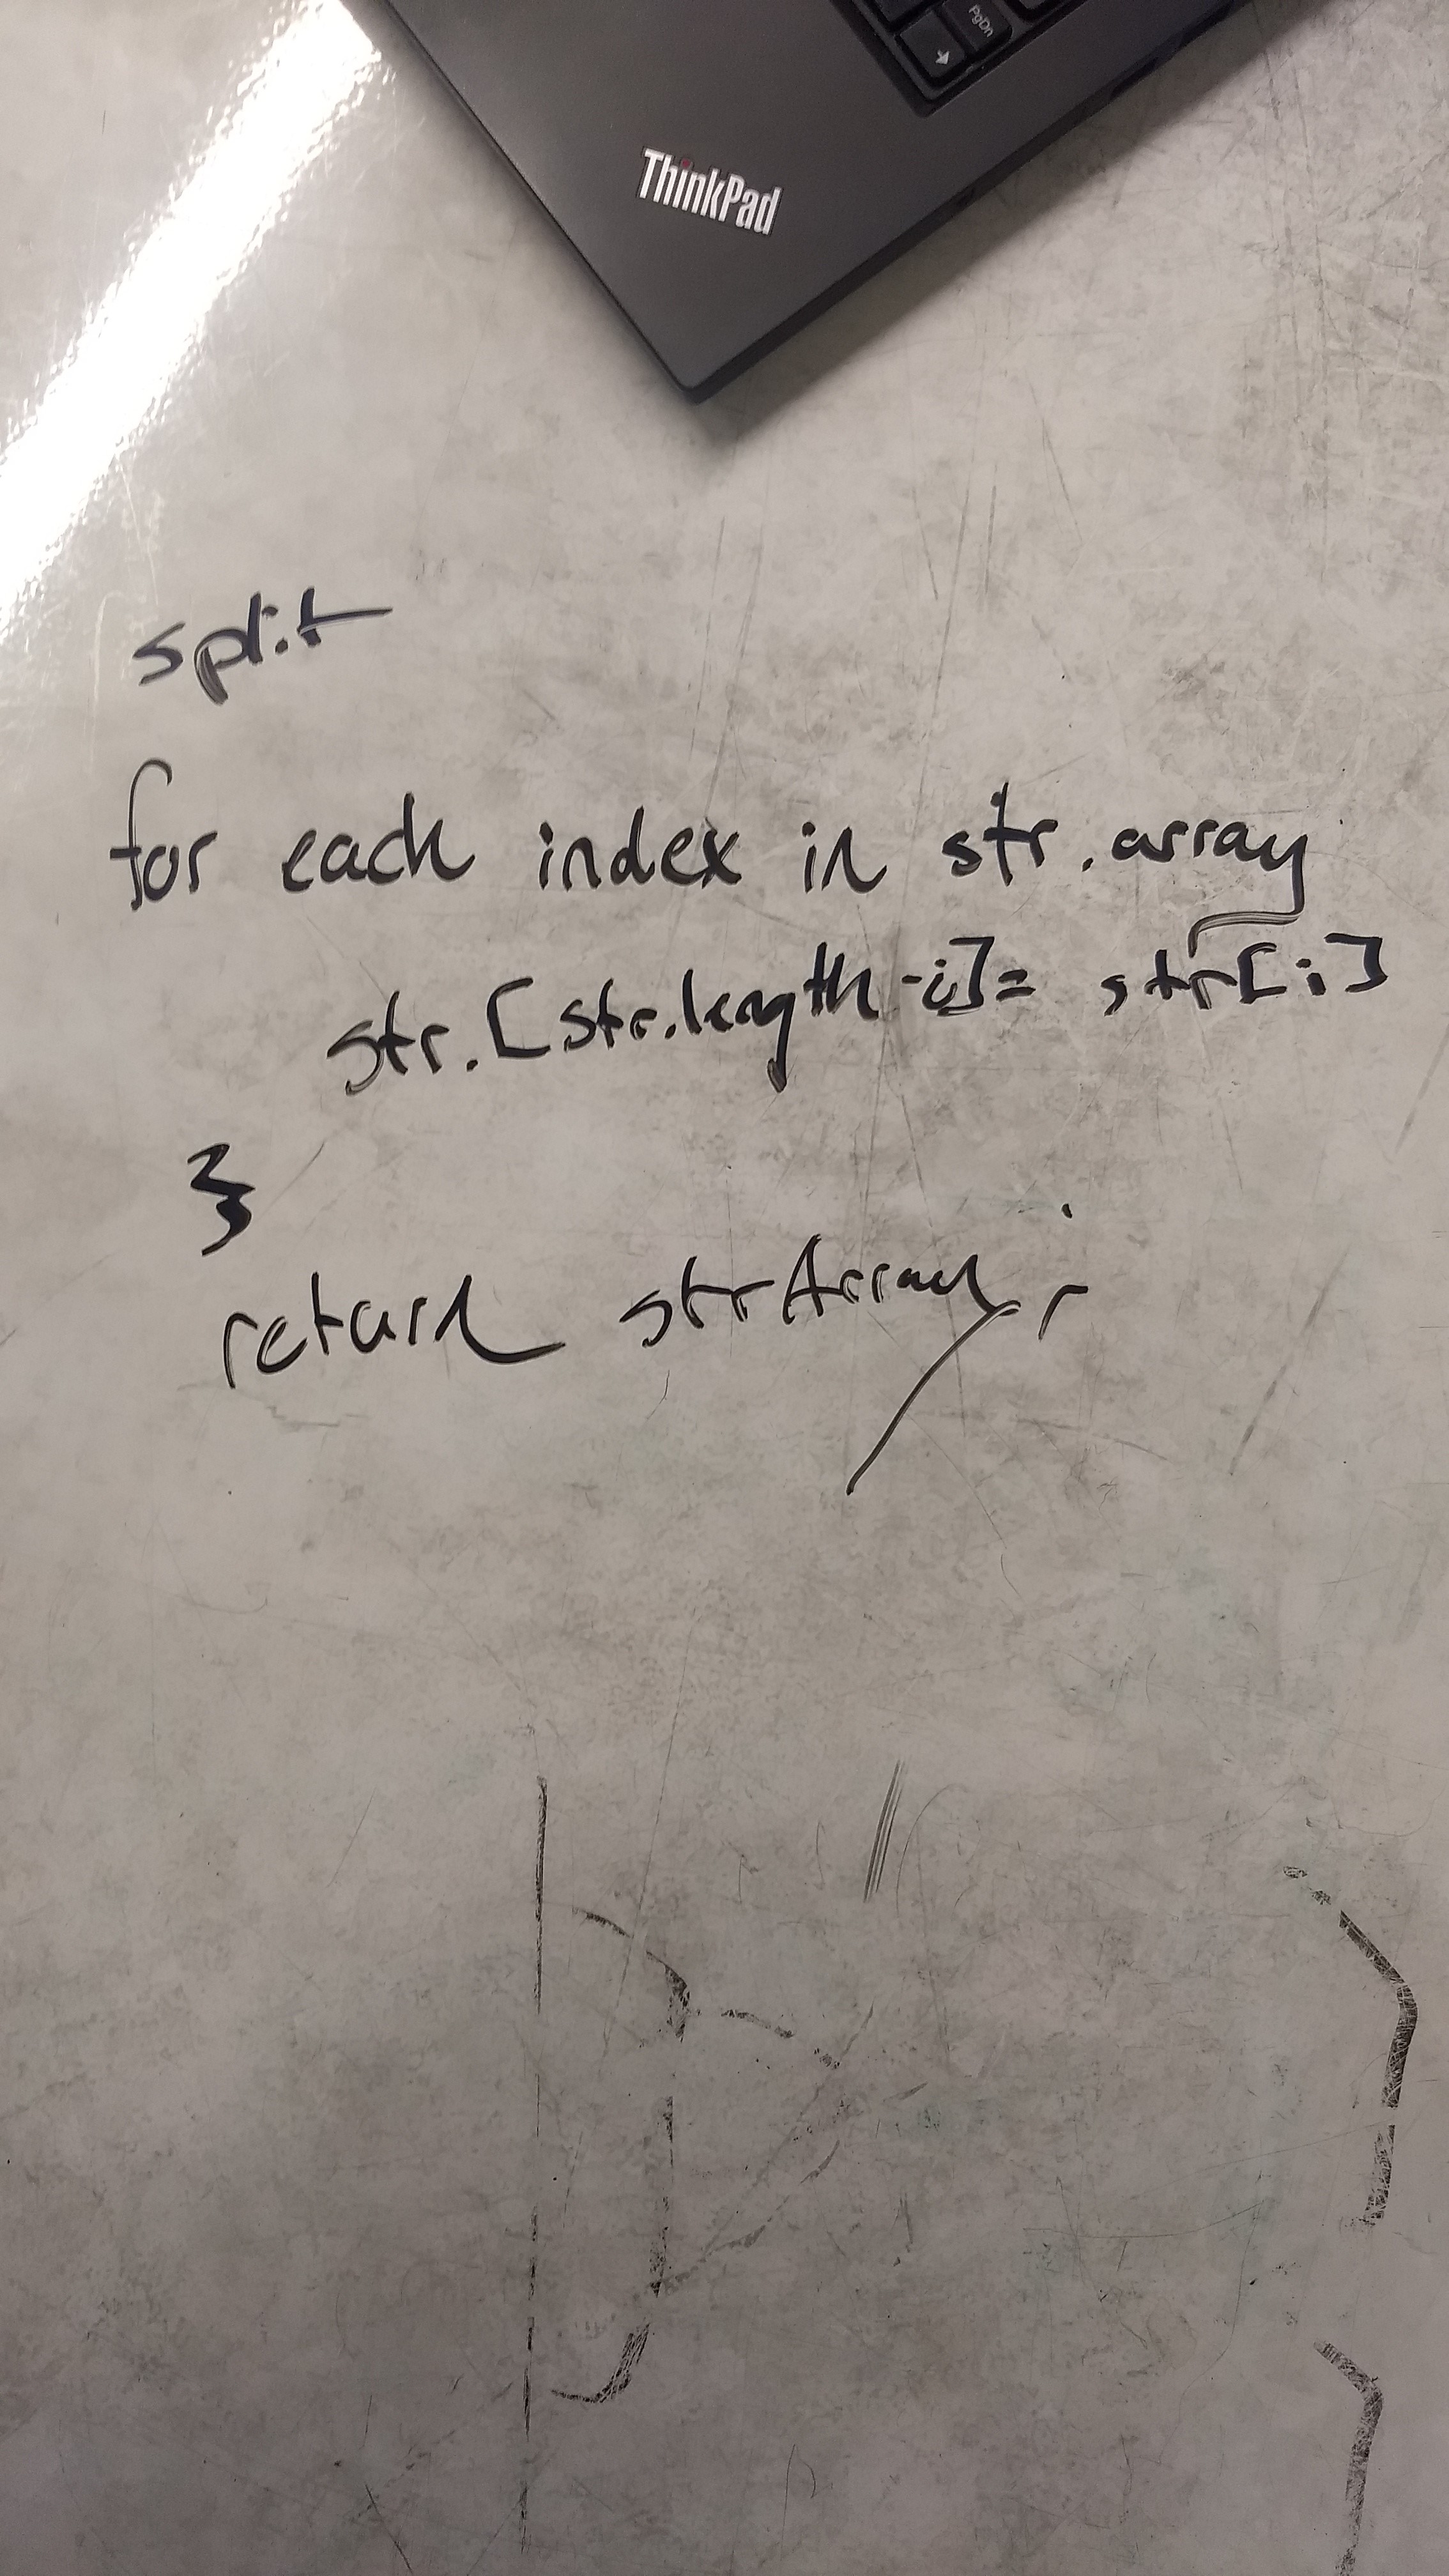 PgDn
ThinkPad
split
for each index in str.array
str.[str.length-i]= str[i]
}
return strArray;